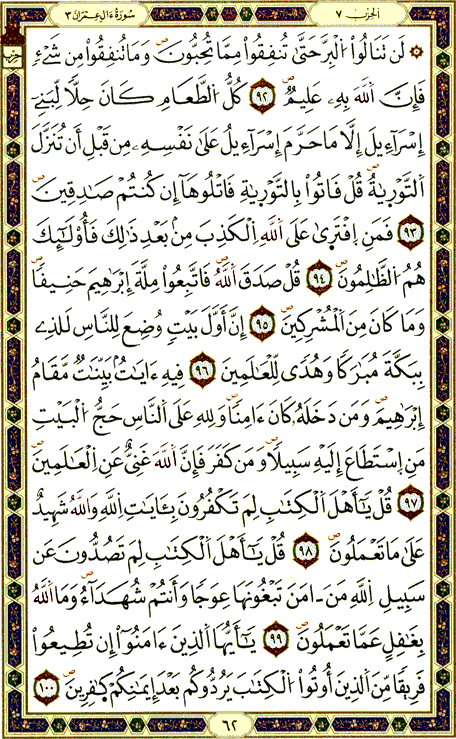 الحزب ٧ سورة ءال عمران ٣
۞ لَن تَنَالُوا۟ اُلْبِرَّ حَتَّىٰ تُنفِقُوا۟ مِمَّا تُحِبُّونَۖ وَمَا تُنفِقُوا۟ مِن شَےْءٖ
فَإِنَّ اَللَّهَ بِهِۦ عَلِيمٞۖ ٩٢ كُلُّ اُلطَّعَامِ كَانَ حِلّٗا لِّبَنِےٓ
إِسْرَآءِيلَ إِلَّا مَا حَرَّمَ إِسْرَآءِيلُ عَلَىٰ نَفْسِهِۦ مِن قَبْلِ أَن تُنَزَّلَ
اَلتَّوْرَىٰةُۖ قُلْ فَاتُوا۟ بِالتَّوْرَىٰةِ فَاتْلُوهَآ إِن كُنتُمْ صَٰدِقِينَۖ
٩٣ فَمَنِ اِفْتَرَىٰ عَلَى اَللَّهِ اِلْكَذِبَ مِنۢ بَعْدِ ذَٰلِكَ فَأُو۟لَٰٓئِكَ
هُمُ اُلظَّٰلِمُونَۖ ٩٤ قُلْ صَدَقَ اَللَّهُۖ فَاتَّبِعُوا۟ مِلَّةَ إِبْرَٰهِيمَ حَنِيفٗاۖ
وَمَا كَانَ مِنَ اَلْمُشْرِكِينَۖ ٩٥ إِنَّ أَوَّلَ بَيْتٖ وُضِعَ لِلنَّاسِ لَلذِے
بِبَكَّةَ مُبَٰرَكٗا وَهُدٗى لِّلْعَٰلَمِينَۖ ٩٦ فِيهِ ءَايَٰتُۢ بَيِّنَٰتٞ مَّقَامُ
إِبْرَٰهِيمَۖ وَمَن دَخَلَهُۥ كَانَ ءَامِنٗاۖ وَلِلهِ عَلَى اَلنَّاسِ حَجُّ اُلْبَيْتِ
مَنِ اِسْتَطَاعَ إِلَيْهِ سَبِيلٗاۖ وَمَن كَفَرَ فَإِنَّ اَللَّهَ غَنِىٌّ عَنِ اِلْعَٰلَمِينَۖ
٩٧ قُلْ يَٰٓأَهْلَ اَلْكِتَٰبِ لِمَ تَكْفُرُونَ بِـَٔايَٰتِ اِللَّهِ وَاللَّهُ شَهِيدٌ
عَلَىٰ مَا تَعْمَلُونَۖ ٩٨ قُلْ يَٰٓأَهْلَ اَلْكِتَٰبِ لِمَ تَصُدُّونَ عَن
سَبِيلِ اِللَّهِ مَنَ ـ امَنَ تَبْغُونَهَا عِوَجٗا وَأَنتُمْ شُهَدَآءُۖ وَمَا اَللَّهُ
بِغَٰفِلٍ عَمَّا تَعْمَلُونَۖ ٩٩ يَٰٓأَيُّهَا اَلذِينَ ءَامَنُوٓا۟ إِن تُطِيعُوا۟
فَرِيقٗا مِّنَ اَلذِينَ أُوتُوا۟ اُلْكِتَٰبَ يَرُدُّوكُم بَعْدَ إِيمَٰنِكُمْ كَٰفِرِينَۖ ١٠٠
٦٢